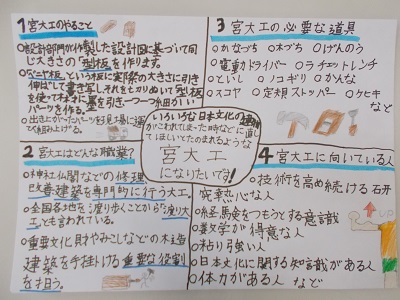 1 宮大工のやること
○設計部門が作製した設計図に基づいて同
じ大きさの「型板」を作ります。
○「ベニヤ板」という板に実際の大きさに引き
伸ばして書き写し、それをとりぬいて「型板」
を使って木材に墨を引き一つ一つ細かい
パーツを作る。
○出き上がったパーツを現場に運
んで組み上げる。
3 宮大工の必要な道具
○かなづち ○木づち ○げんのう
○電動ドライバー ○ラチェットレンチ
○といし ○ノコギリ ○かんな
○スコヤ ○定規ストッパー ○ケヒキ
など
いろいろな日本文化の建物
がこわれてしまった時などに直し
てほしいとたのまれるような
宮大工
になりたいです!
2 宮大工はどんな職業?
○神社仏閣などの修理、
改善建築を専門的に行う大工。
○全国各地を渡り歩くことから「渡り大
工」とも言われている。
○重要文化財やみこしなどの木造
建築を手掛ける重要な役割
を担う。
4 宮大工に向いている人
○技術を高め続ける研
究熱心な人
○経験をつもうとする意識
○数学が得意な人
○粘り強い人
○日本文化に関する知識がある人
○体力がある人 など